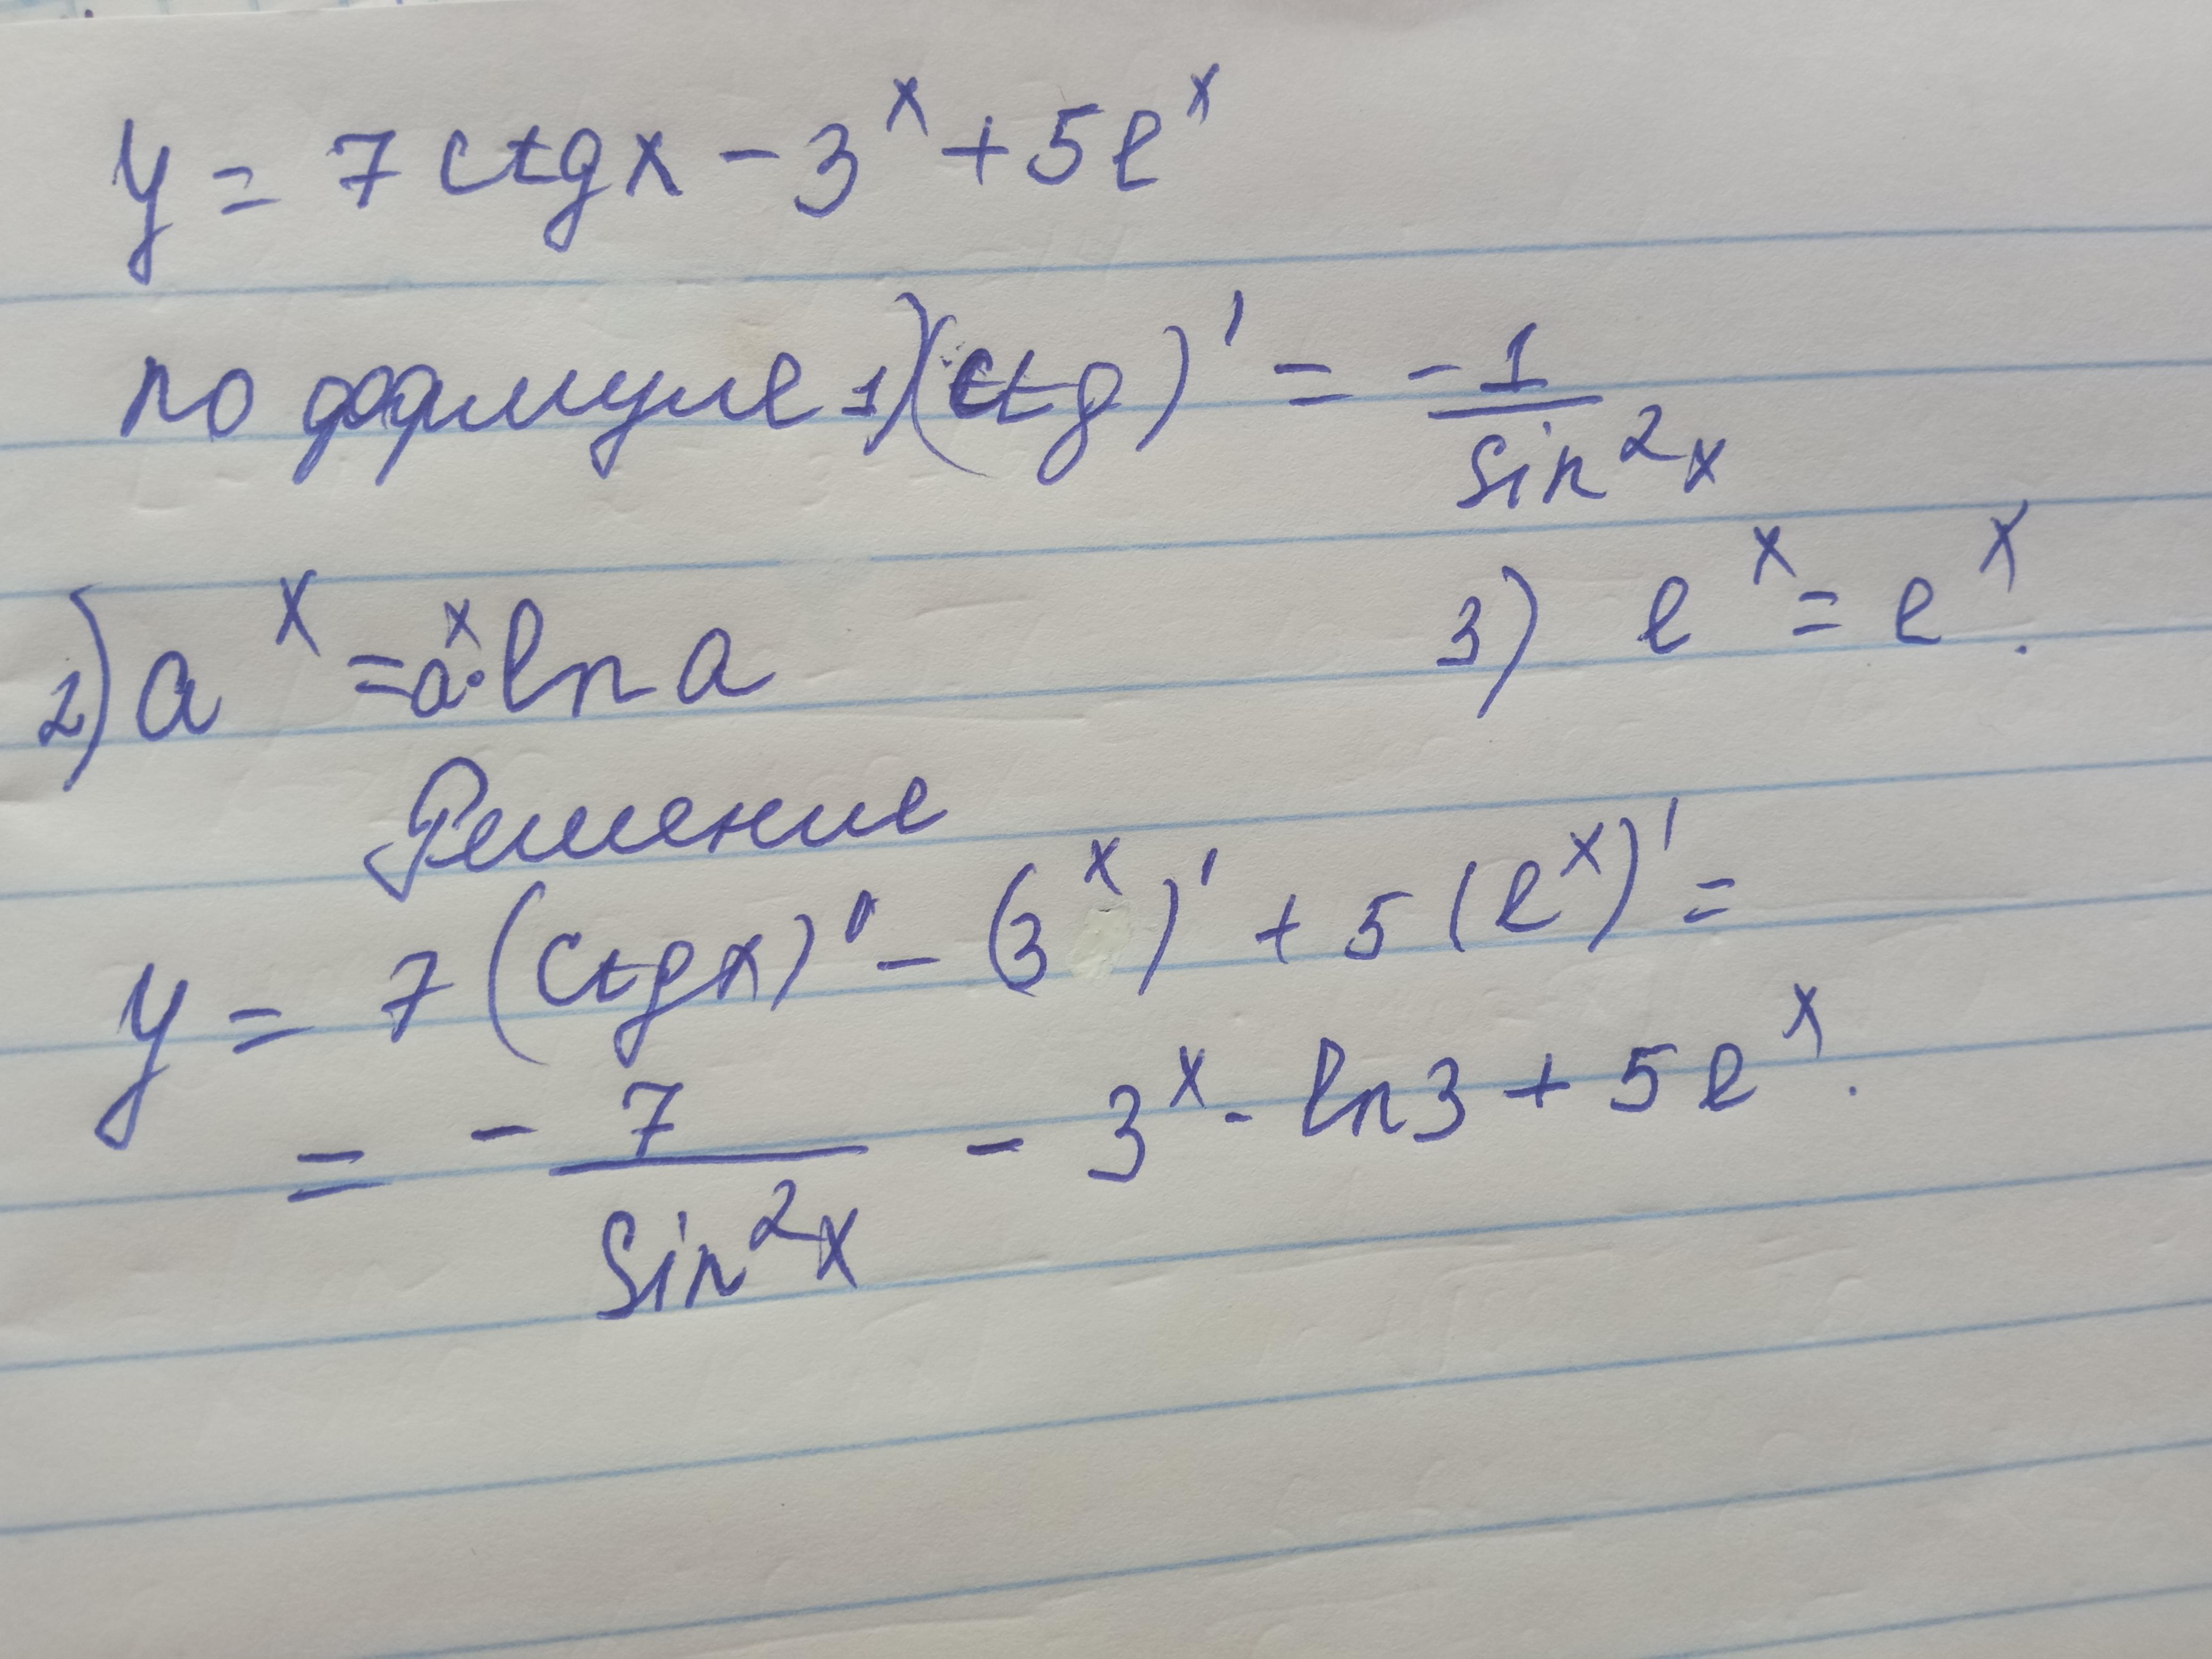 y = 7 ctgx - 3^x + 5e^x
по формуле 1) (ctg)' = -1/sin^2 x
2) a^x = a^x · ln a 3) e^x = e^x.
Решение
y = 7 (ctgx)' - (3^x)' + 5 (e^x)' =
= - 7/sin^2 x - 3^x · ln3 + 5e^x.